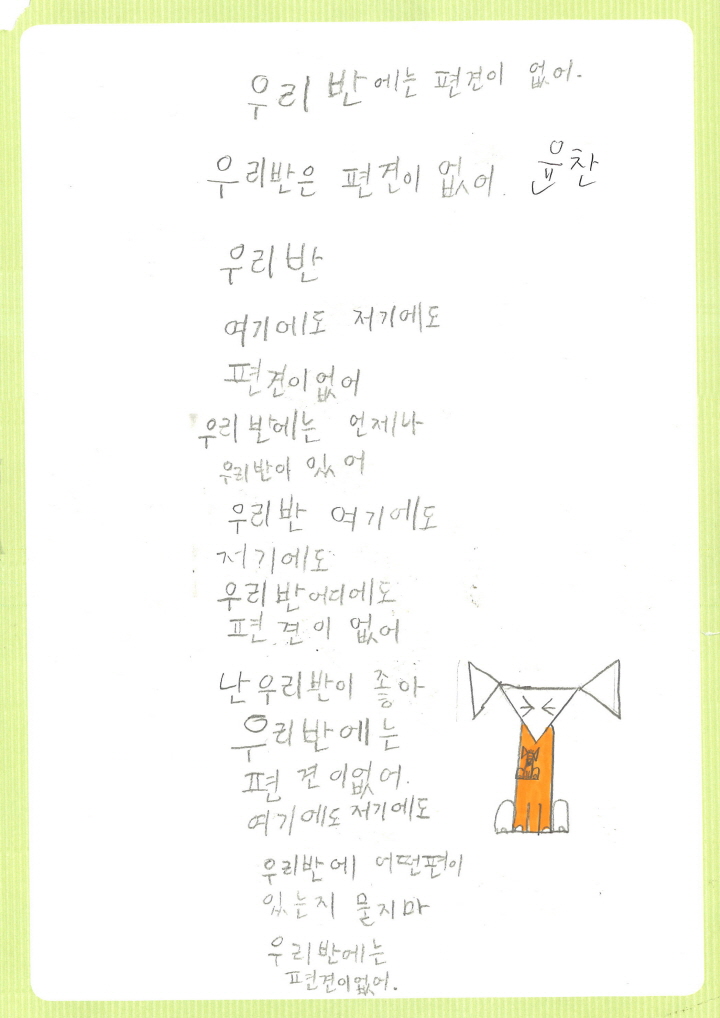 우리 반에는 편견이 없어.
우리반은 편견이 없어. 윤찬
우리 반
여기에도 저기에도
편견이없어
우리 반에는 언제나
우리반아 있어
우리반 여기에도
저기에도
우리반어디에도
편견이 없어
난 우리반이 좋아
우리반에는
편견이없어.
여기에도 저기에도
우리반에 어떤편이
있는지 묻지마
우리반에는
편견이없어.